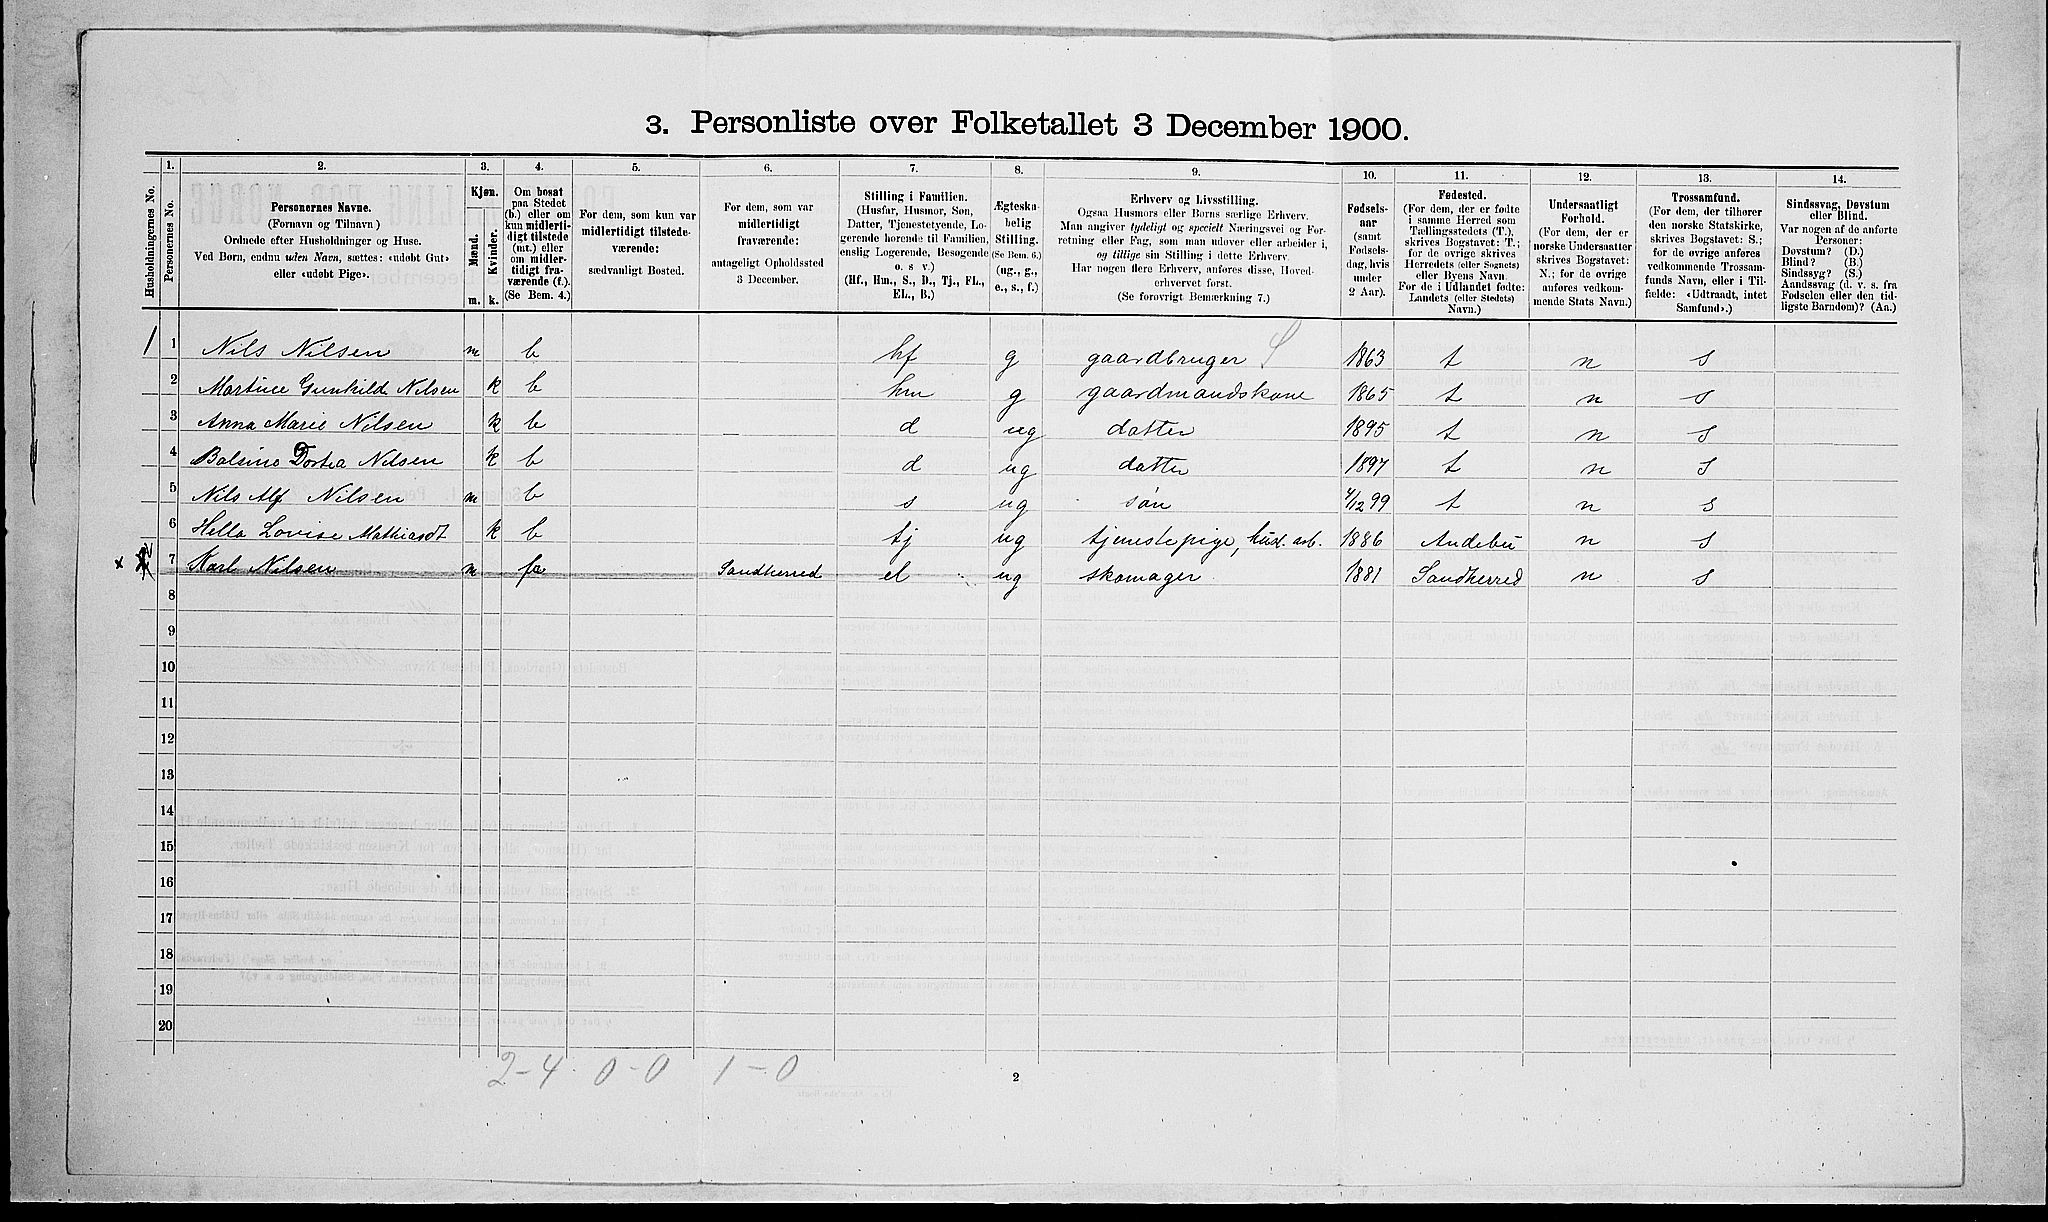 3. Personliste over Folketallet 3 December 1900.
1. 2. 3. 4. 5. 6. 7. 8. 9. 10. 11. 12. 13. 14.
Husholdningernes No.
Personernes No.
Personernes Navne.
(Fornavn og Tilnavn)
Ordnede efter Husholdninger og Huse.
Ved Børn, endnu uden Navn, sættes: «udøbt Gut»
eller «udøbt Pige».
Kjøn.
Mænd.
Kvinder.
m. k.
Om bosat
paa Stedet
(b.) eller om
kun midlerti-
digt tilstede
(mt.) eller
om midler-
tidigt fra-
værende (f.).
(Se Bem. 4.)
For dem, som kun var
midlertidigt tilstede-
værende:
sædvanligt Bosted.
For dem, som var
midlertidigt
fraværende:
antageligt Opholdssted
3 December.
Stilling i Familien.
(Husfar, Husmor, Søn,
Datter, Tjenestetyende, Lo-
gerende hørende til Familien,
enslig Logerende, Besøgende
o. s v.)
(Hf., Hm., S., D., Tj., FL.,
EL., B.)
Ægteska-
belig
Stilling.
(Se Bem. 6.)
(ug., g.,
e., s., f.)
Erhverv og Livsstilling.
Ogsaa Husmors eller Børns særlige Erhverv.
Man angiver tydeligt og specielt Næringsvei og For-
retning eller Fag, som man udøver eller arbeider i,
og tillige sin Stilling i dette Erhverv.
Har nogen flere Erhverv, anføres disse, Hoved-
erhvervet først.
(Se forøvrigt Bemærkning 7.)
Fødsels-
aar
(samt
Fødsels-
dag, hvis
under
2 Aar).
Fødested.
(For dem, der er fødte
i samme Herred som
Tællingsstedets (T.),
skrives Bogstavet: T.;
for de øvrige skrives
Herredets (eller Sognets)
eller Byens Navn.
For de i Udlandet fødte:
Landets (eller Stedets)
Navn.)
Undersaatligt
Forhold.
(For dem, der er
norske Undersaatter
skrives Bogstavet:
N.; for de øvrige
anføres vedkom-
mende Stats Navn.)
Trossamfund.
(For dem, der tilhører
den norske Statskirke,
skrives Bogstavet: S.;
for de øvrige anføres
vedkommende Trossam-
funds Navn, eller i Til-
fælde: «Udtraadt, intet
Samfund».)
Sindssvag, Døvstum
eller Blind.
Var nogen af de anførte
Personer:
Døvstum? (D.)
Blind? (B.)
Sindssyg? (S.)
Aandssvag (d. v. s. fra
Fødselen eller den tid-
ligste Barndom)? (Aa.)
1 1 Nils Nilsen m b hf g gaardbruger S 1863 t n s
2 Gunhild Nilsen k b hm g gaardmandskone 1865 t n s
3 Anna Marie Nilsen k b d ug datter 1895 t n s
4 Dortea Nilsen k b d ug datter 1897 t n s
5 Nils Alf Nilsen m b s ug søn 4/12 99 t n s
6 Lovise Mathiasdt k b tj ug tjenestepige, husl. arb. 1886 Andebu n s
x 7 Karl Nilsen m fr Sandherred el ug skomager 1881 Sandherred n s
8
9
10
11
12
13
14
15
16
17
18
19
20
2-4 0-0 1-0
2